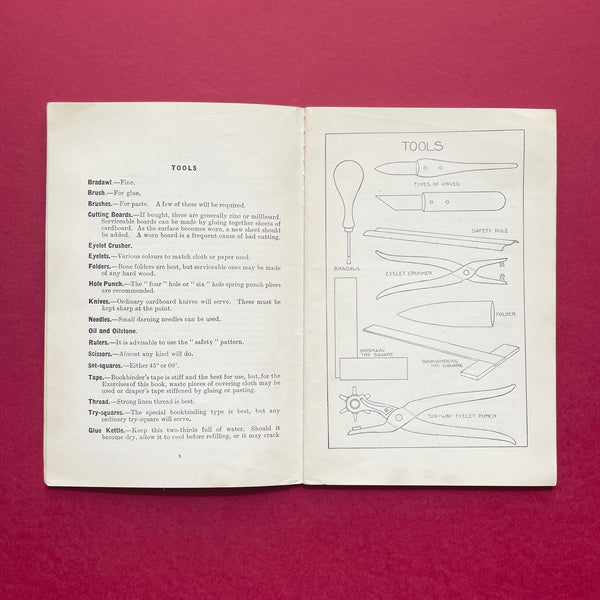 TOOLS
Bradawl.—Fine.
Brush.—For glue.
Brushes.—For paste. A few of these will be required.
Cutting Boards.—If bought, these are generally zinc or millboard.
Serviceable boards can be made by gluing together sheets of
cardboard. As the surface becomes worn, a new sheet should
be added. A worn board is a frequent cause of bad cutting.
Eyelet Crusher.
Eyelets.—Various colours to match cloth or paper used.
Folders.—Bone folders are best, but serviceable ones may be made
of any hard wood.
Hole Punch.—The " four " hole or " six " hole spring punch pliers
are recommended.
Knives.—Ordinary cardboard knives will serve. These must be
kept sharp at the point.
Needles.—Small darning needles can be used.
Oil and Oilstone.
Rulers.—It is advisable to use the " safety " pattern.
Scissors.—Almost any kind will do.
Set-squares.—Either 45° or 60°.
Tape.—Bookbinder's tape is stiff and the best for use, but, for the
Exercises of this book, waste pieces of covering cloth may be
used or draper's tape stiffened by gluing or pasting.
Thread.—Strong linen thread is best.
Try-squares.—The special bookbinding type is best, but any
ordinary try-square will serve.
Glue Kettle.—Keep this two-thirds full of water. Should it
become dry, allow it to cool before refilling, or it may crack
TOOLS
TYPES OF KNIVES
SAFETY RULE
BRADAWL
EYELET CRUSHER
FOLDER
ORDINARY
TRY SQUARE
BOOKBINDERS
TRY SQUARE
SIX-WAY EYELET PUNCH